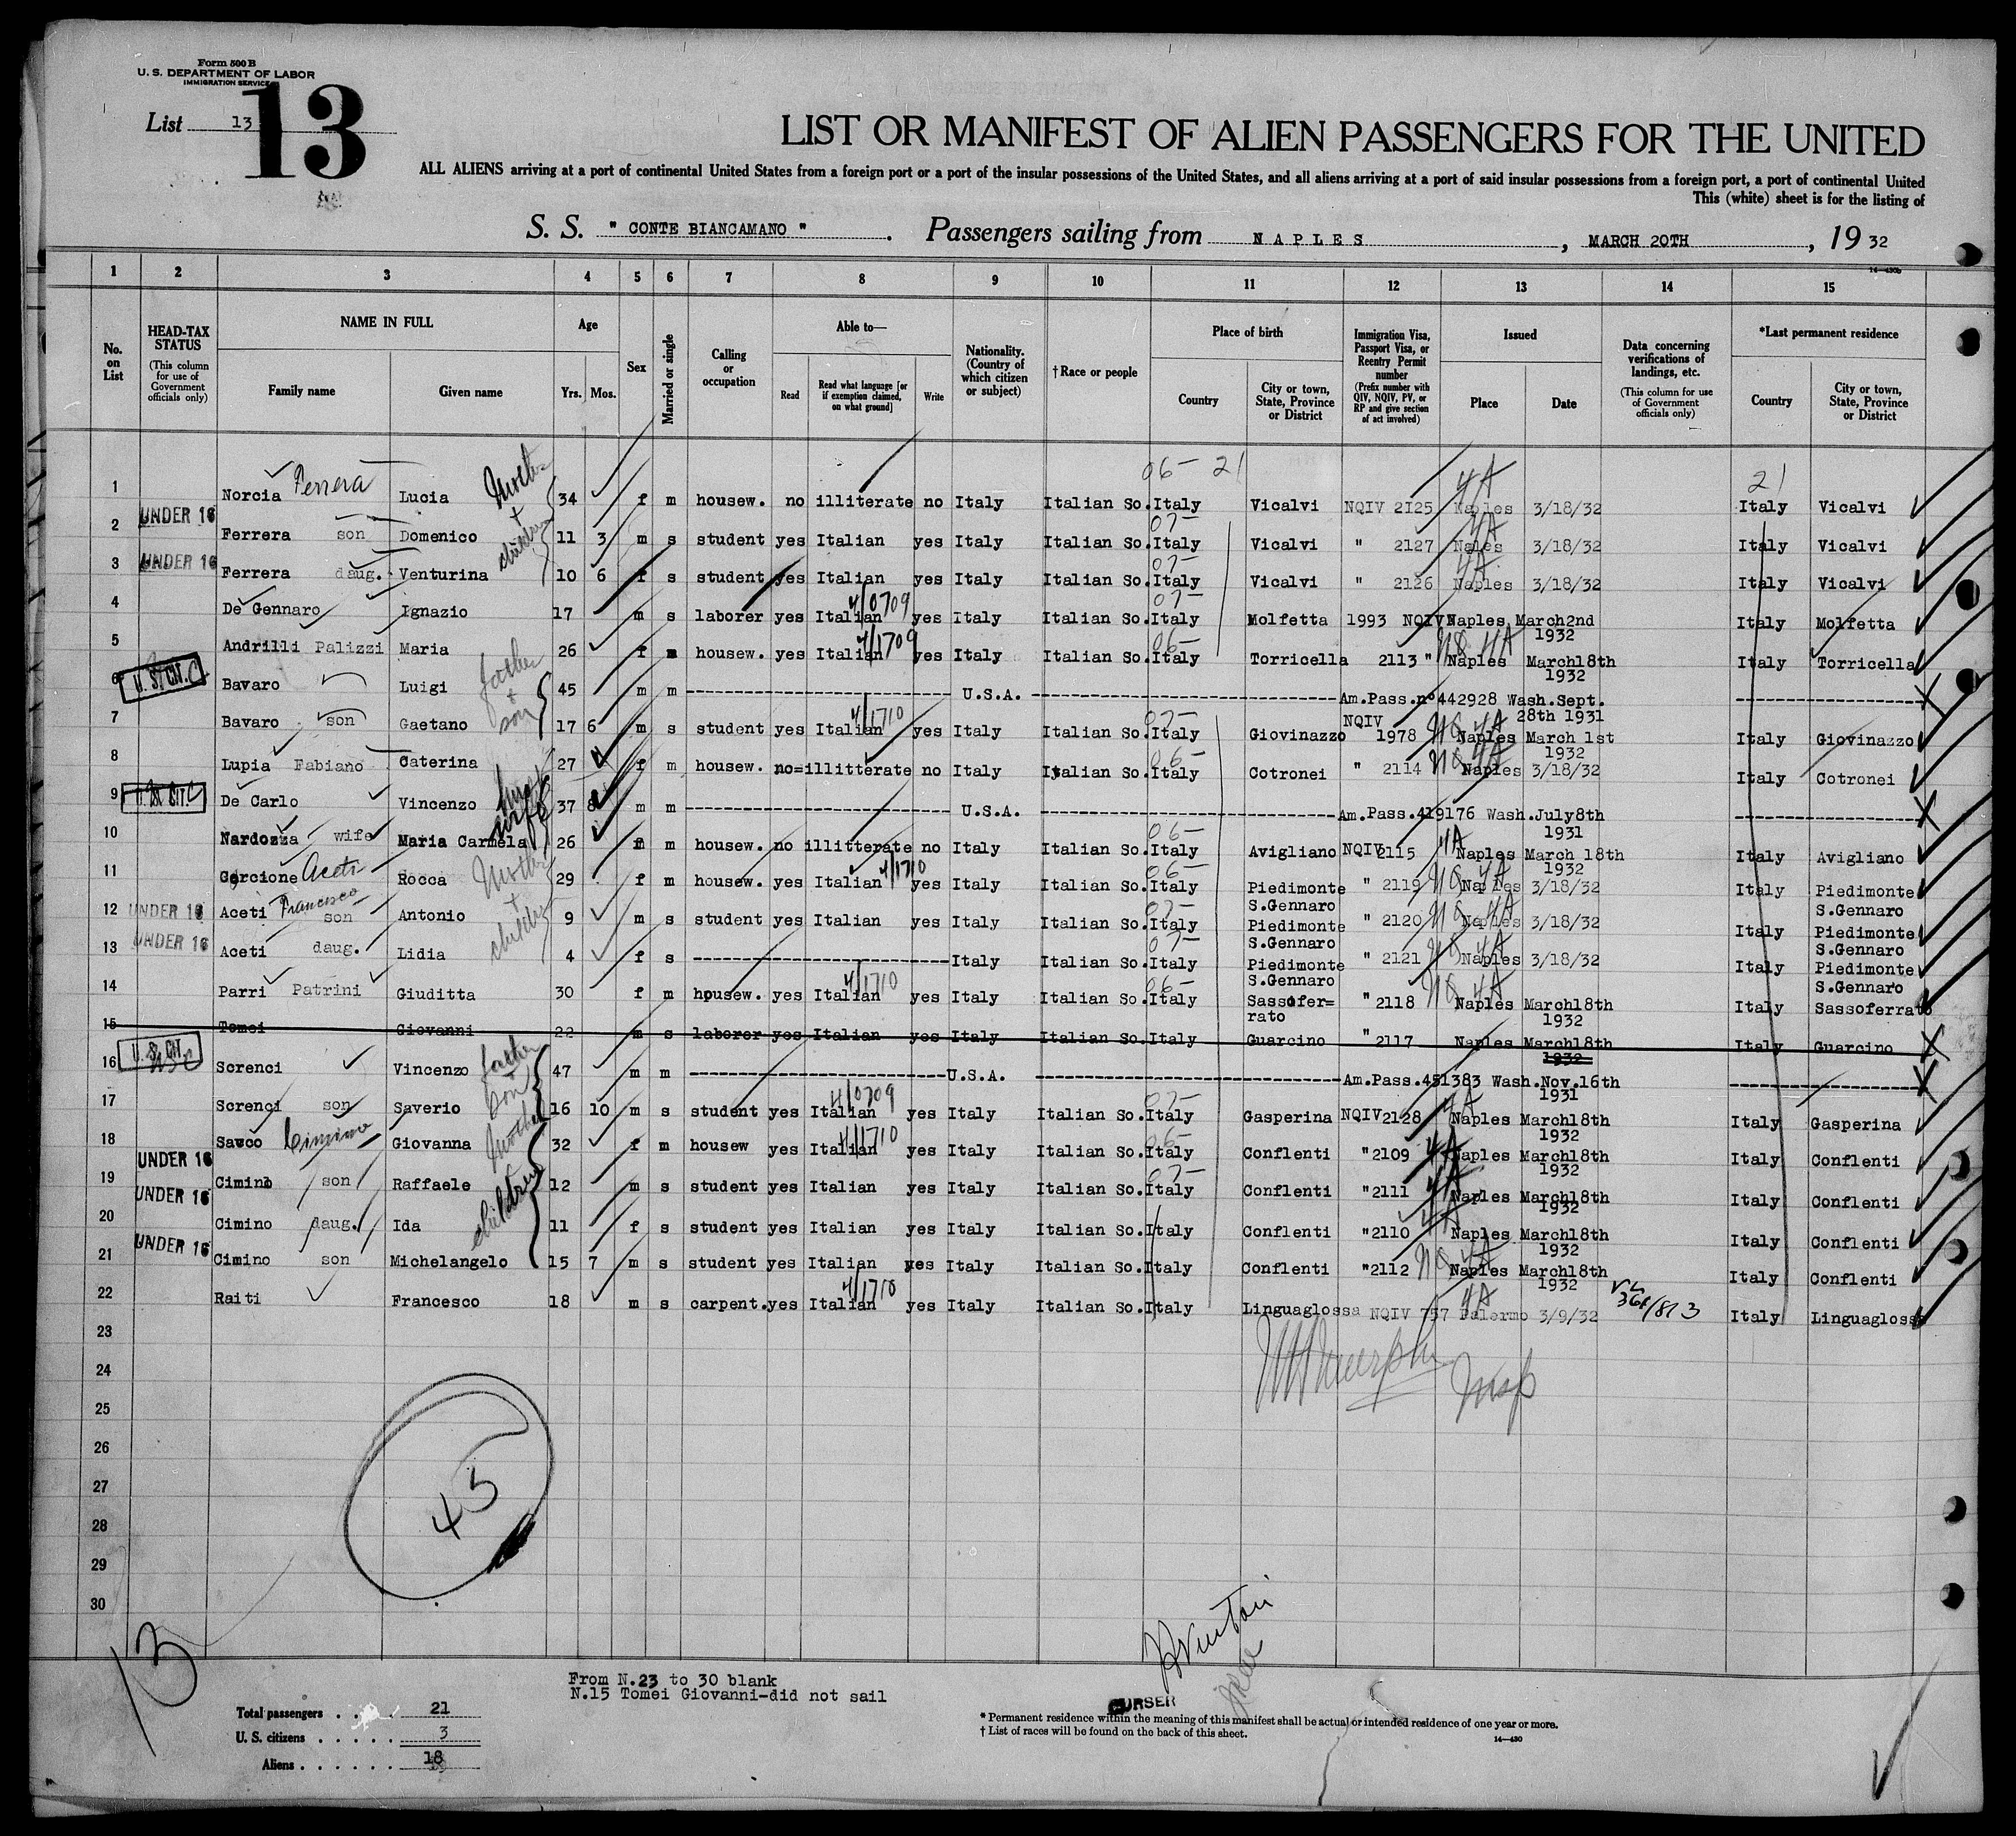 Form 500 B
U. S. DEPARTMENT OF LABOR
IMMIGRATION SERVICE
List 13
13
LIST OR MANIFEST OF ALIEN PASSENGERS FOR THE UNITED
ALL ALIENS arriving at a port of continental United States from a foreign port or a port of the insular possessions of the United States, and all aliens arriving at a port of said insular possessions from a foreign port, a port of continental United
This (white) sheet is for the listing of
S. S. " CONTE BIANCAMANO " . Passengers sailing from NAPLES , MARCH 20TH , 19 32
14—430b
1 2 3 4 5 6 7 8 9 10 11 12 13 14 15
No. on List
HEAD-TAX STATUS (This column for use of Government officials only)
NAME IN FULL
Family name Given name
Age Yrs. Mos.
Sex
Married or single
Calling or occupation
Able to—
Read Read what language [or if exemption claimed, on what ground] Write
Nationality. (Country of which citizen or subject)
†Race or people
Place of birth
Country City or town, State, Province or District
Immigration Visa, Passport Visa, or Reentry Permit number (Prefix number with QIV, NQIV, PV, or RP and give section of act involved)
Issued
Place Date
Data concerning verifications of landings, etc. (This column for use of Government officials only)
*Last permanent residence
Country City or town, State, Province or District
06- 21 4A 21
1 Norcia Ferrera Lucia Mother + children 34 f m housew. no illiterate no Italy Italian So. Italy Vicalvi NQIV 2125 Naples 3/18/32 Italy Vicalvi
UNDER 16 07- 4A
2 Ferrera son Domenico 11 3 m s student yes Italian yes Italy Italian So. Italy Vicalvi " 2127 Naples 3/18/32 Italy Vicalvi
UNDER 16 07- 4A
3 Ferrera daug. Venturina 10 6 f s student yes Italian yes Italy Italian So. Italy Vicalvi " 2126 Naples 3/18/32 Italy Vicalvi
4/0709 07-
4 De Gennaro Ignazio 17 m s laborer yes Italian yes Italy Italian So. Italy Molfetta 1993 NQIV Naples March2nd 1932 Italy Molfetta
4/1709 06- NQ 4A
5 Andrilli Palizzi Maria 26 f m housew. yes Italian yes Italy Italian So. Italy Torricella 2113 " Naples March18th 1932 Italy Torricella
U. S. CIT.
6 Bavaro Luigi father + son 45 m m U.S.A. Am.Pass.nº442928 Wash.Sept. 28th 1931
4/1710 07- NQ 4A
7 Bavaro son Gaetano 17 6 m s student yes Italian yes Italy Italian So. Italy Giovinazzo NQIV 1978 Naples March 1st 1932 Italy Giovinazzo
06- NQ 4A
8 Lupia Fabiano Caterina 27 f m housew. no=illitterate no Italy Italian So. Italy Cotronei " 2114 Naples 3/18/32 Italy Cotronei
U. S. CIT.
9 De Carlo Vincenzo 37 8 m m U.S.A. Am.Pass.419176 Wash.July8th 1931
wife 06- 4A
10 Nardozza wife Maria Carmela 26 f m housew. no illitterate no Italy Italian So. Italy Avigliano NQIV 2115 Naples March 18th 1932 Italy Avigliano
4/1710 06- NQ 4A
11 Corcione Aceti Rocca Mother + children 29 f m housew. yes Italian yes Italy Italian So. Italy Piedimonte S.Gennaro " 2119 Naples 3/18/32 Italy Piedimonte S.Gennaro
UNDER 16 07- NQ 4A
12 Aceti Francesco son Antonio 9 m s student yes Italian yes Italy Italian So. Italy Piedimonte S.Gennaro " 2120 Naples 3/18/32 Italy Piedimonte S.Gennaro
UNDER 16 07- NQ 4A
13 Aceti daug. Lidia 4 f s Italy Italian So. Italy Piedimonte S.Gennaro " 2121 Naples 3/18/32 Italy Piedimonte S.Gennaro
4/1710 06- NQ 4A
14 Parri Patrini Giuditta 30 f m housew. yes Italian yes Italy Italian So. Italy Sassofer=rato " 2118 Naples March18th 1932 Italy Sassoferrato
15 Tomei Giovanni 22 m s laborer yes Italian yes Italy Italian So. Italy Guarcino " 2117 Naples March18th 1932 Italy Guarcino
U. S. CIT. USC
16 Screnci Vincenzo father + son 47 m m U.S.A. Am.Pass.451383 Wash.Nov.16th 1931
4/0709 07- 4A
17 Screnci son Saverio 16 10 m s student yes Italian yes Italy Italian So. Italy Gasperina NQIV 2128 Naples March18th 1932 Italy Gasperina
4/1710 06- 4A
18 Sacco Cimino Giovanna Mother children 32 f m housew yes Italian yes Italy Italian So. Italy Conflenti " 2109 Naples March18th 1932 Italy Conflenti
UNDER 16 07- 4A
19 Cimino son Raffaele 12 m s student yes Italian yes Italy Italian So. Italy Conflenti " 2111 Naples March18th 1932 Italy Conflenti
UNDER 16 4A
20 Cimino daug. Ida 11 f s student yes Italian yes Italy Italian So. Italy Conflenti " 2110 Naples March18th 1932 Italy Conflenti
UNDER 16 NQ 4A
21 Cimino son Michelangelo 15 7 m s student yes Italian yes Italy Italian So. Italy Conflenti " 2112 Naples March18th 1932 Italy Conflenti
4/1710 4A
22 Raiti Francesco 18 m s carpent. yes Italian yes Italy Italian So. Italy Linguaglossa NQIV 757 Palermo 3/9/32 Italy Linguaglossa
23
24
25
26
27
28
29
30
45
13
From N.23 to 30 blank
N.15 Tomei Giovanni-did not sail
Total passengers . . . . 21
U. S. citizens . . . . . 3
Aliens . . . . . . 18
PURSER
* Permanent residence within the meaning of this manifest shall be actual or intended residence of one year or more.
† List of races will be found on the back of this sheet.
14—430